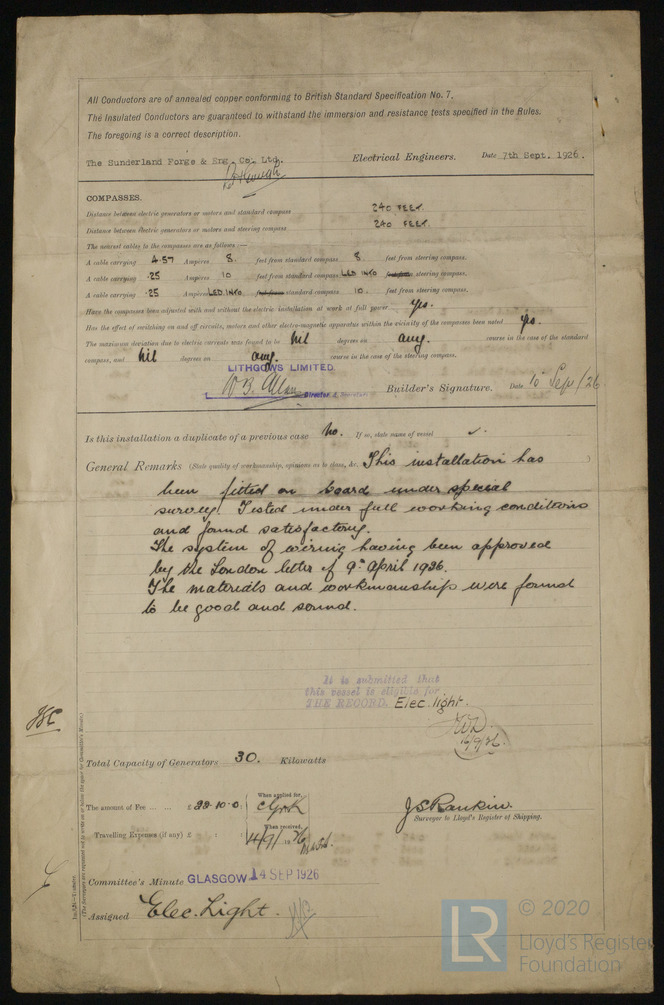 All Conductors are of annealed copper conforming to British Standard Specification No. 7.
The Insulated Conductors are guaranteed to withstand the immersion and resistance tests specified in the Rules.
The foregoing is a correct description.
The Sunderland Forge & Eng. Co. Ltd. Electrical Engineers. Date 7th Sept. 1926.
COMPASSES.
Distance between electric generators or motors and standard compass 240 FEET.
Distance between electric generators or motors and steering compass 240 FEET.
The nearest cables to the compasses are as follows :—
A cable carrying 4.57 Ampères 8. feet from standard compass 8. feet from steering compass.
A cable carrying .25 Ampères 10 feet from standard compass LED INTO feet from steering compass.
A cable carrying .25 Ampères LED INTO feet from standard compass 10. feet from steering compass.
Have the compasses been adjusted with and without the electric installation at work at full power Yes.
Has the effect of switching on and off circuits, motors and other electro-magnetic apparatus within the vicinity of the compasses been noted Yes.
The maximum deviation due to electric currents was found to be Nil degrees on any. course in the case of the standard
compass, and Nil degrees on any. course in the case of the steering compass.
LITHGOWS LIMITED
W B. Allan Director Builder's Signature. Date 10 Sep/26
Is this installation a duplicate of a previous case No. If so, state name of vessel
General Remarks (State quality of workmanship, opinions as to class, &c. This installation has
been fitted on board under special
survey. Tested under full working conditions
and found satisfactory.
The system of wiring having been approved
by the London letter of 9th April 1926.
The materials and workmanship were found
to be good and sound.
It is submitted that
this vessel is eligible for
THE RECORD. Elec. light.
16/9/26.
Total Capacity of Generators 30. Kilowatts
The amount of Fee ... ... £ 22-10-0 When applied for,
J S Rankin.
Surveyor to Lloyd's Register of Shipping.
Travelling Expenses (if any) £ When received,
Committee's Minute GLASGOW 14 SEP 1926
Assigned Elec. Light.
LR © 2020
Lloyd's Register
Foundation